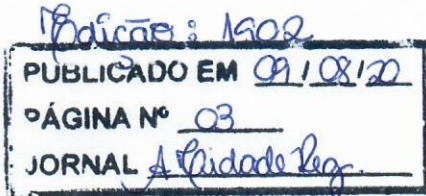 Edição: 1902
PUBLICADO EM 09 / 08 / 20
PÁGINA Nº 03
JORNAL A Cidade Reg.